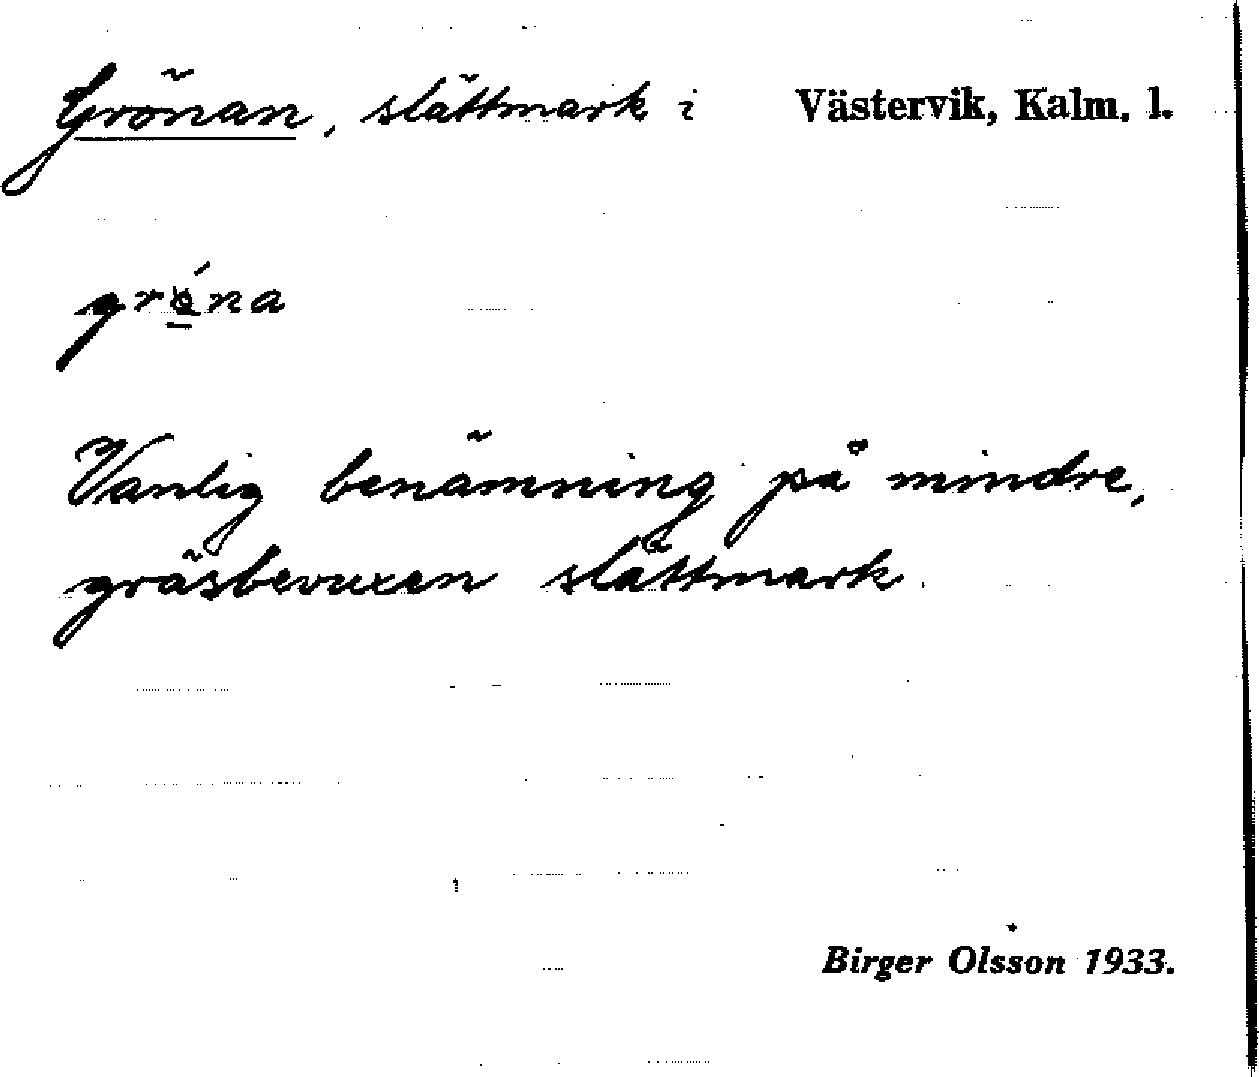 Grönan, slåttmark i Västervik, Kalm. l.
grǿ̱na
Vanlig benämning på mindre,
gräsbevuxen slåttmark.
Birger Olsson 1933.